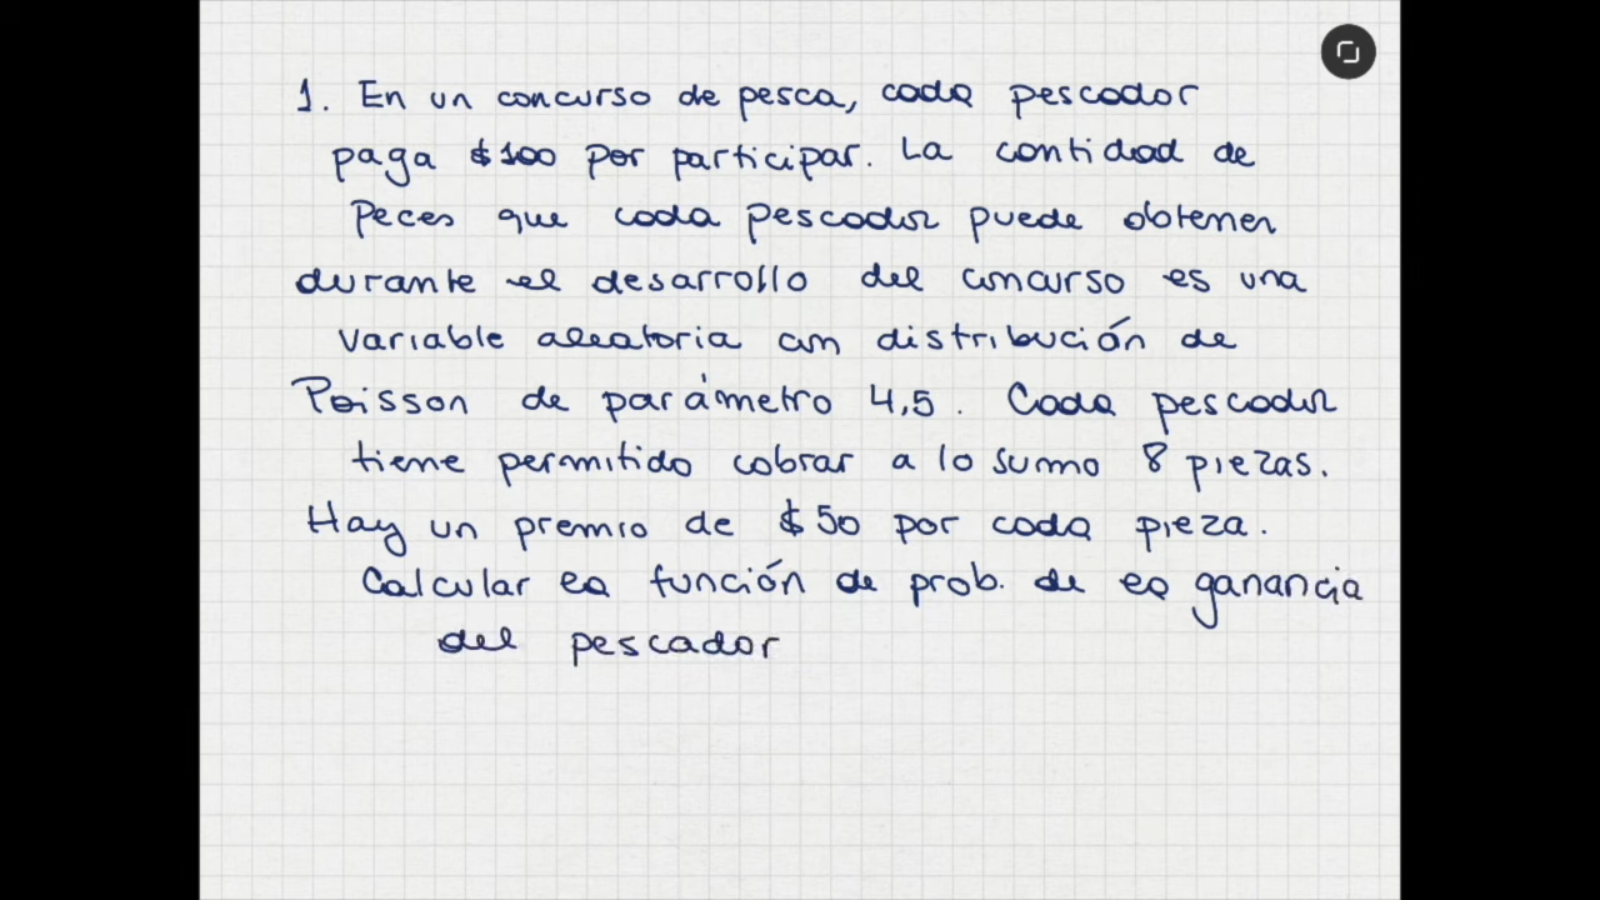 1. En un concurso de pesca, cada pescador
paga $100 por participar. La cantidad de
Peces que cada pescador puede obtener
durante el desarrollo del concurso es una
variable aleatoria con distribución de
Poisson de parámetro 4,5. Cada pescador
tiene permitido cobrar a lo sumo 8 piezas.
Hay un premio de $50 por cada pieza.
Calcular la función de prob. de la ganancia
del pescador